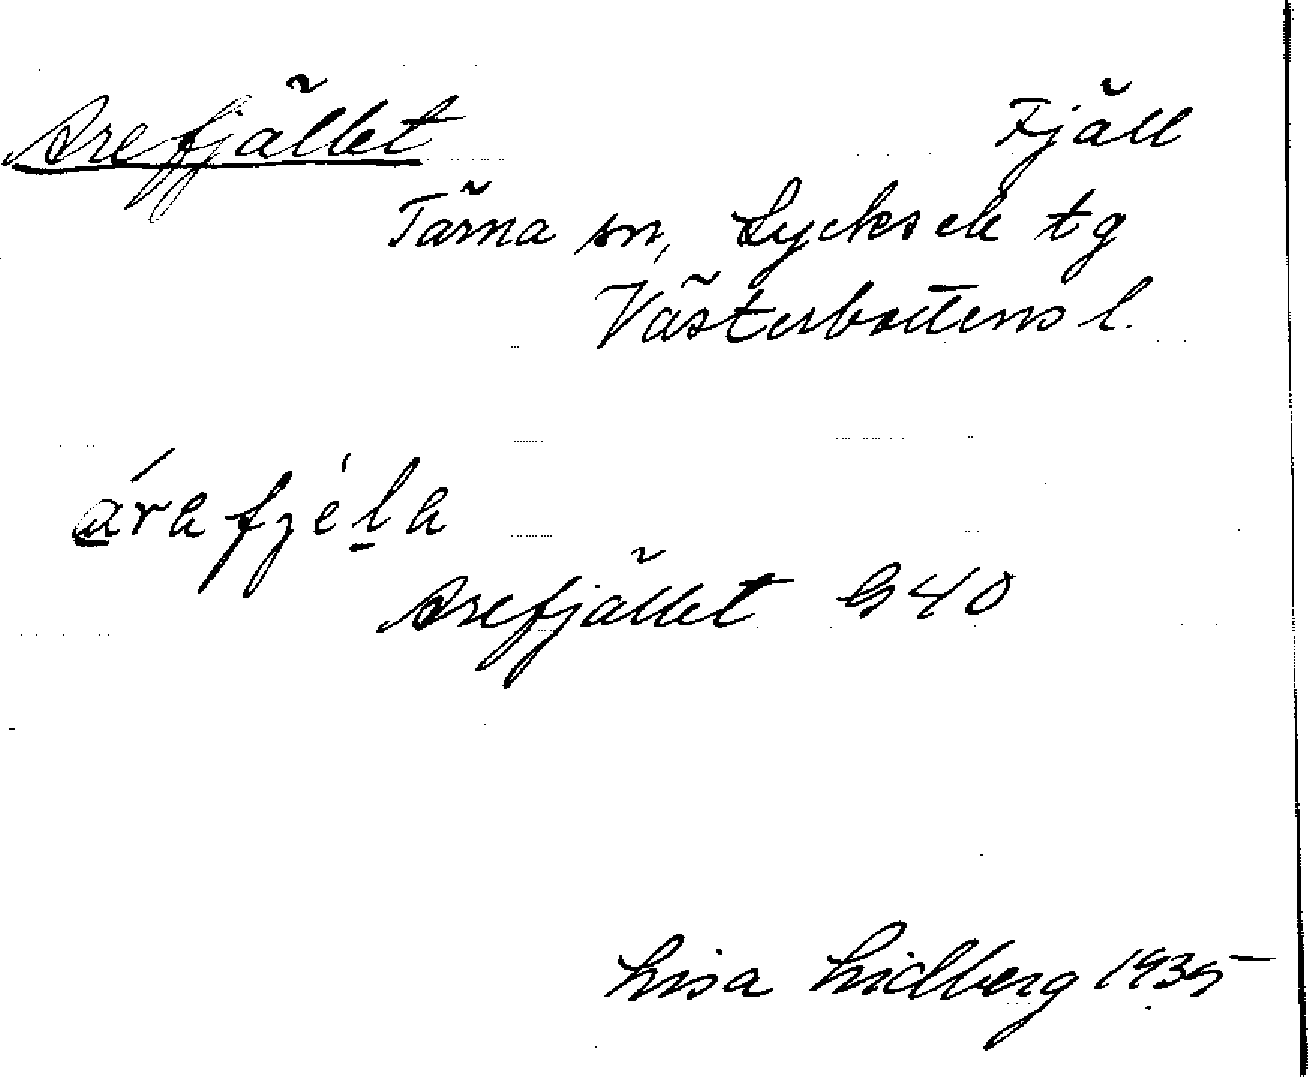 Arefjället Fjäll
Tärna sn, Lycksele tg
Västerbottens l.
árafjéla
Arefjället G 40
Lisa Lidberg 1935